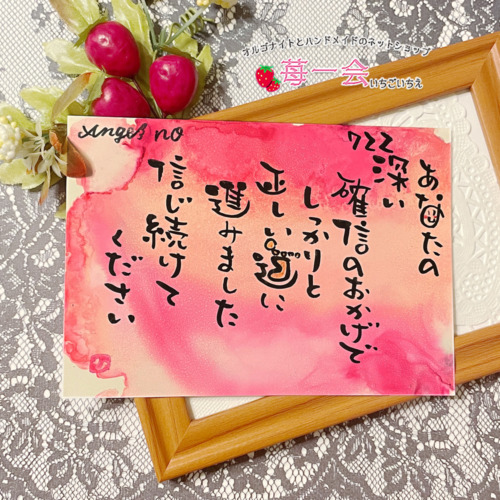 オルゴナイトとハンドメイドのネットショップ
苺一会
いちごいちえ
Angel no
722
あなたの
深い
確信のおかげで
しっかりと
正しい道に
進みました
信じ続けて
ください